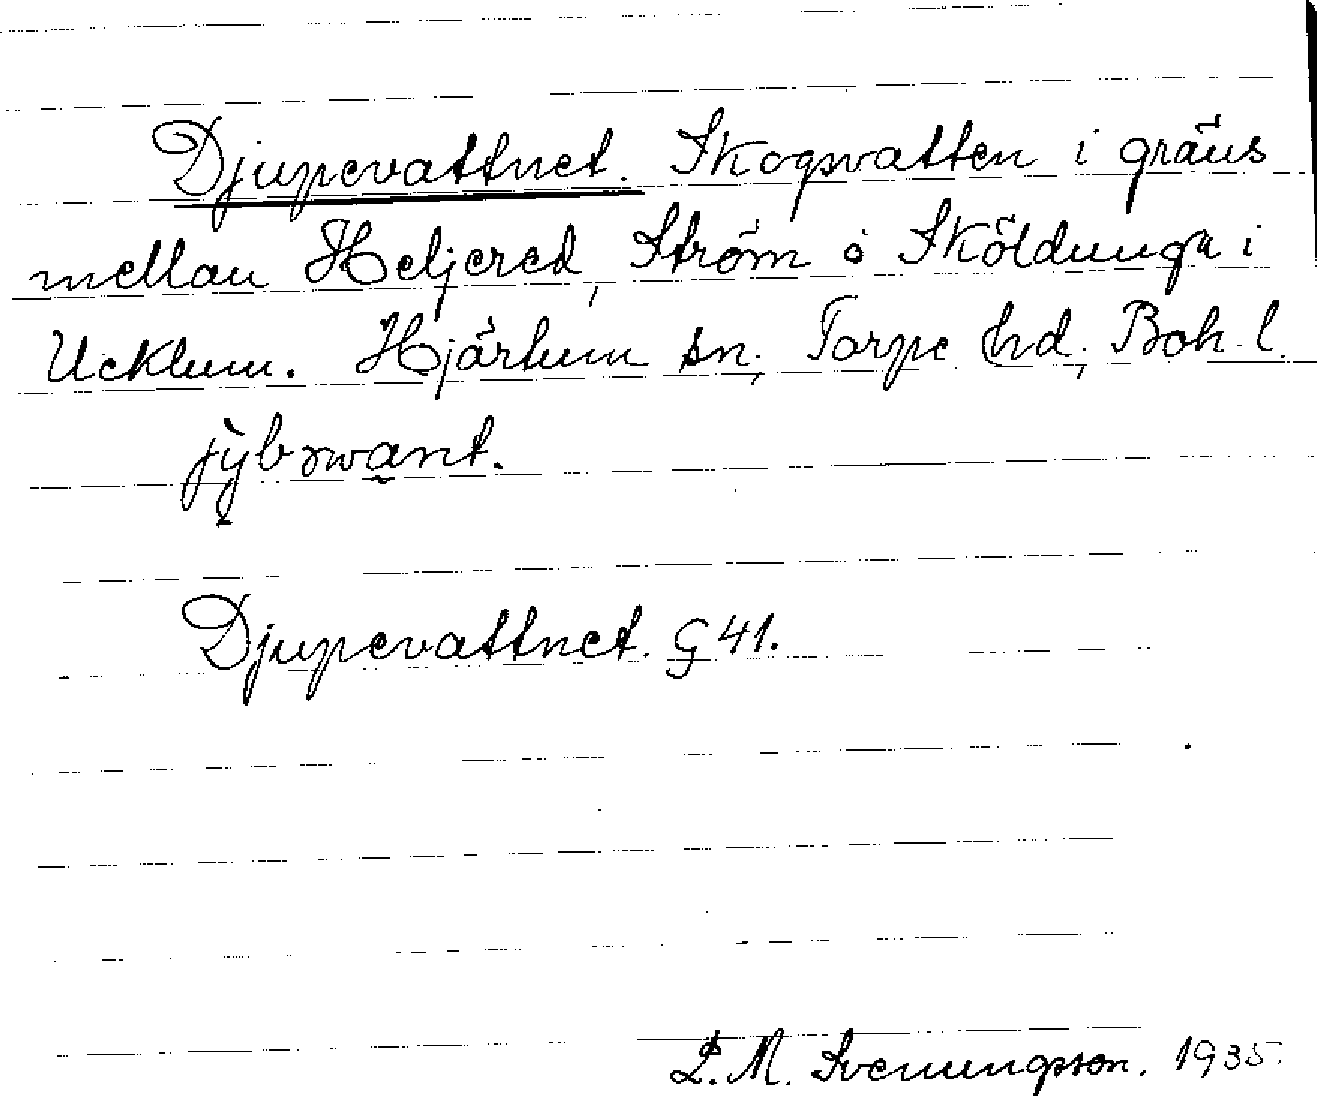 Djupevattnet. Skogsvatten i gräns
mellan Heljered, Ström o Sköldunga i
Ucklum. Hjärtum sn, Torpe hd, Boh. l.
Djupevattnet. G 41.
L. M. Svenungsson. 1935.